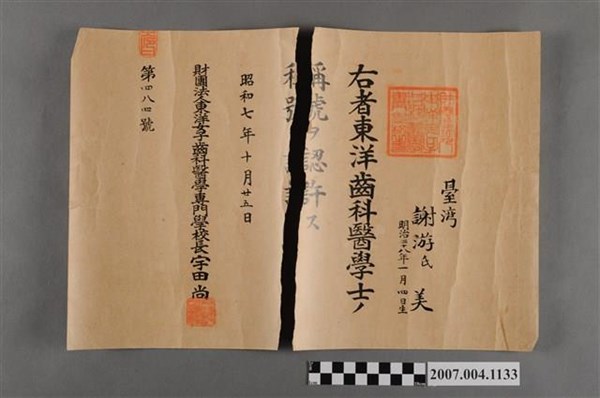 臺湾
謝游氏美
明治卅八年一月四日生
右者東洋齒科醫學士ノ
稱號ヲ認許ス
昭和七年十月廿五日
財團法人東洋女子齒科醫學專門學校長宇田尚
第四八四號
2007.004.1133